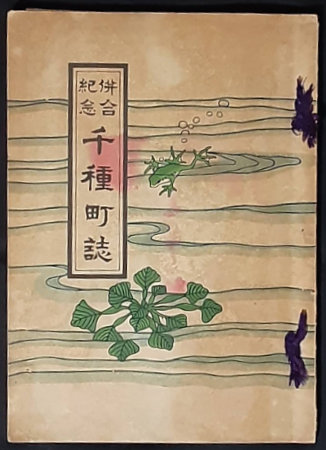 併合
紀念
千種町誌